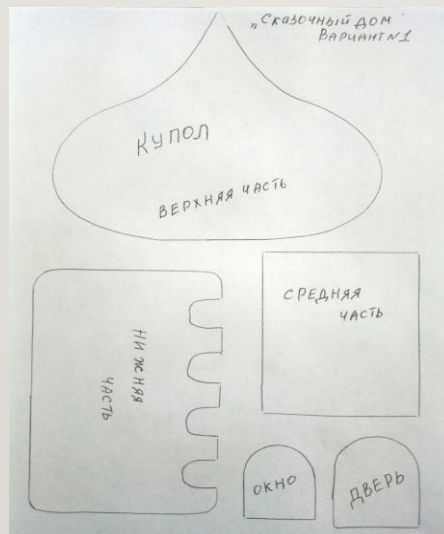 „Сказочный дом
Вариант №1
Купол
Верхняя часть
Средняя
часть
Нижняя
часть
Окно
Дверь